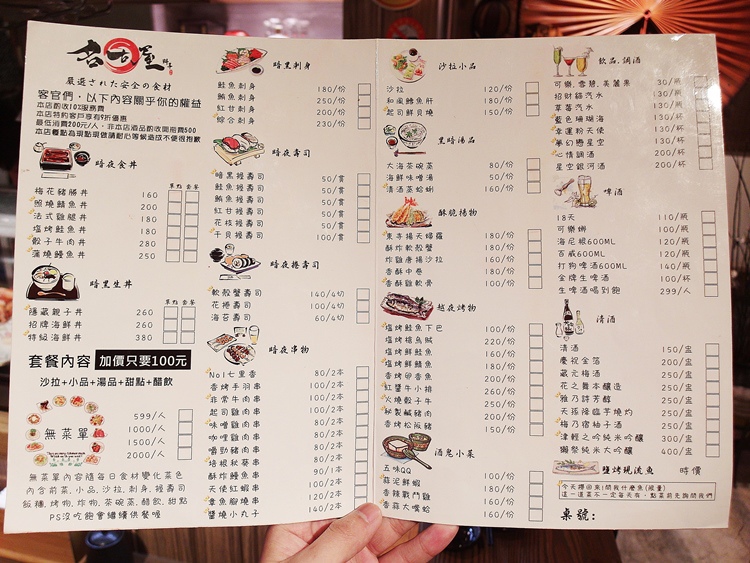 嚴選された安全の食材
客官們，以下內容關乎你的權益
本店酌收10%服務費
本店特約客戶享有9折優惠
最低消費200元/人，非本店酒品酌收開瓶費500
本店餐點為現點現做請耐心等候造成不便很抱歉
暗夜食丼
單點 套餐
梅花豬勝丼 160
照燒鯖魚丼 200
法式雞腿丼 180
塩烤鮭魚丼 180
骰子牛肉丼 280
蒲燒鰻魚丼 250
暗黑生丼
單點 套餐
隱藏親子丼 260
招牌海鮮丼 260
特級海鮮丼 380
套餐內容 加價只要100元
沙拉+小品+湯品+甜點+醋飲
無菜單
599/人
1000/人
1500/人
2000/人
無菜單內容隨每日食材變化菜色
內含前菜,小品,沙拉,刺身,握壽司
飯糰,烤物,炸物,茶碗蒸,醋飲,甜點
PS沒吃飽會繼續供餐喔
暗黑刺身
鮭魚刺身 180/份
鮪魚刺身 250/份
紅甘刺身 200/份
綜合刺身 230/份
暗夜壽司
暗黑握壽司 50/貫
鮭魚握壽司 50/貫
鮪魚握壽司 50/貫
紅甘握壽司 50/貫
花枝握壽司 50/貫
干貝握壽司 100/貫
暗夜捲壽司
軟殼蟹壽司 140/4切
花捲壽司 100/4切
海苔壽司 60/4切
暗夜串物
No1七里香 80/2本
香烤手羽串 100/2本
非常牛肉串 100/2本
起司雞肉串 100/2本
味噌雞肉串 80/2本
咖哩雞肉串 80/2本
嚼勁豬肉串 80/2本
培根秋葵串 80/2本
酥烤鯖魚串 90/1本
天使紅蝦串 100/2本
章魚腳燒串 140/2本
醬燒小丸子 140/2本
沙拉小品
沙拉 120/份
和風鱈魚肝 180/份
起司鮮貝燒 150/份
黑暗湯品
大海茶碗蒸 80/份
海鮮味噌湯 50/份
清酒蒸蛤蜊 160/份
酥脆揚物
東寺揚天婦羅 180/份
酥炸軟殼蟹 180/份
炸雞唐揚沙拉 160/份
香酥中卷 180/份
香酥雞軟骨 100/份
越夜烤物
塩烤鮭魚下巴 100/份
塩烤槍烏賊 220/份
塩烤鮮鮭魚 160/份
塩烤鮮鯖魚 160/份
香烤卵香魚 200/份
紅醬牛小排 200/份
火燒骰子牛 250/份
秘製鹹豬肉 200/份
香烤松阪豬 150/份
酒鬼小菜
五味QQ 150/份
蒜泥鮮蝦 180/份
香辣戰鬥雞 150/份
香蒜大嘴蛤 160/份
飲品,調酒
可樂,雪碧,美蔓果 30/瓶
招財貓汽水 80/瓶
草莓汽水 80/瓶
藍色珊瑚海 200/杯
幸運粉天使 200/杯
夢幻戀星空 200/杯
心情調酒 200/杯
星空銀河酒 200/杯
啤酒
18天 110/瓶
可樂娜 100/瓶
海尼根600ML 120/瓶
百威600ML 120/瓶
打狗啤酒600ML 140/瓶
金牌生啤酒 100/杯
生啤酒喝到飽 299/人
清酒
清酒 150/盅
慶祝金箔 200/盅
蔵元梅酒 250/盅
花之舞本釀造 250/盅
雅乃詩芳醇 250/盅
天孫降臨芋燒灼 250/盅
梅乃宿柚子酒 250/盅
津輕之吟純米大吟釀 300/盅
獺祭純米大吟釀 400/盅
鹽烤現流魚 時價
今天釣回來!問我什麼魚(限量)
這一道菜不一定每天有,點菜前先詢問我們
桌號: